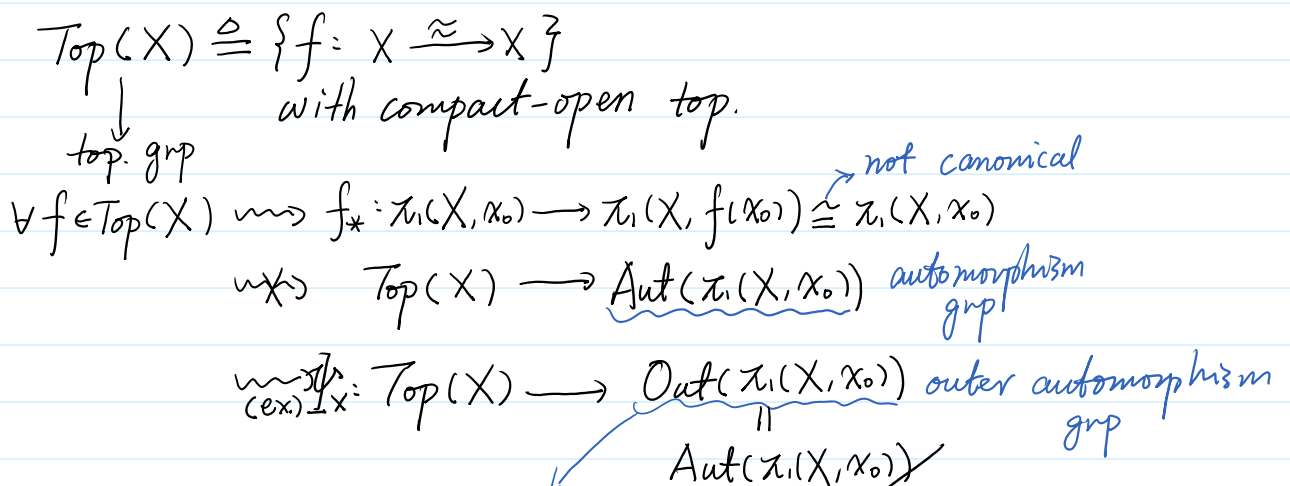 Top(X) ≜ {f: X ≈→ X}
with compact-open top.
top. grp
not canonical
∀ f ∈ Top(X) ⇝ f_* : π₁(X, x₀) → π₁(X, f(x₀)) ≅ π₁(X, x₀)
Top(X) → Aut(π₁(X, x₀)) automorphism
grp
(ex.) Ψ_X: Top(X) → Out(π₁(X, x₀)) outer automorphism
grp
||
Aut(π₁(X, x₀))/